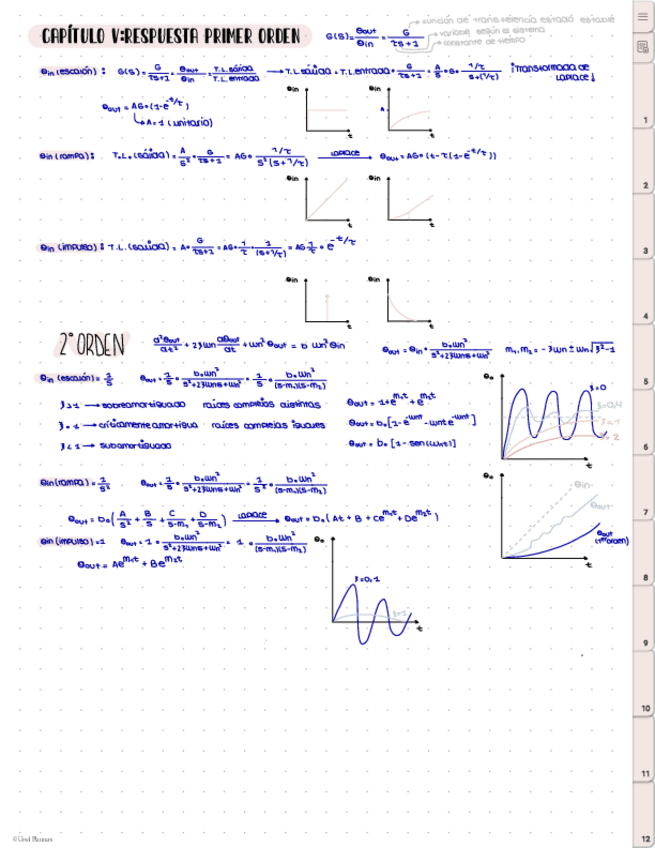 CAPÍTULO V: RESPUESTA PRIMER ORDEN
G(s) = θout/θin = G/(τs+1)
función de transferencia estado estable
variable según el sistema
constante de tiempo
θin (escalón): G(s) = G/(τs+1) = θout/θin = T.L. salida/T.L. entrada → T.L. salida = T.L. entrada · G/(τs+1) = A/s · G · (1/τ)/(s+(1/τ)) ¡Transformada de Laplace!
θout = AG·(1-e^-t/τ)
A=1 (unitario)
θin
t
θin
A
t
1
θin (rampa): T.L. (salida) = A/s² · G/(τs+1) = AG · (1/τ)/(s²(s+1/τ)) Laplace → θout = AG·(t-τ(1-e^-t/τ))
θin
t
θin
t
2
3
θin (impulso): T.L. (salida) = A · G/(τs+1) = AG · 1/τ · 1/(s+1/τ) = AG 1/τ · e^-t/τ
θin
t
θin
t
4
2° ORDEN
a²θout/at² + 2ζωn aθout/at + ωn² θout = b ωn² θin
θout = θin · b₀ωn²/(s²+2ζωns+ωn²)
m₁, m₂ = -ζωn ± ωn√(ζ²-1)
θin (escalón) = 1/s
θout = 1/s · b₀ωn²/(s²+2ζωns+ωn²) = 1/s · b₀ωn²/((s-m₁)(s-m₂))
5
ζ>1 → sobreamortiguado raíces complejas distintas
θout = 1+e^m₁t + e^m₂t
ζ=1 → críticamente amortigua raíces complejas iguales
θout = b₀[1-e^-ωnt - ωnt e^-ωnt]
ζ<1 → subamortiguado
θout = b₀[1-sen(ωnt)]
θo
ζ=0
ζ=0,4
ζ=1
ζ=2
t
6
θin (rampa) = 1/s²
θout = 1/s² · b₀ωn²/(s²+2ζωns+ωn²) = 1/s² · b₀ωn²/((s-m₁)(s-m₂))
θout = b₀(A/s² + B/s + C/(s-m₁) + D/(s-m₂)) Laplace → θout = b₀(At + B + Ce^m₁t + De^m₂t)
θo
θin
θout
θout
(1er orden)
t
7
θin (impulso) = 1
θout = 1 · b₀ωn²/(s²+2ζωns+ωn²) = 1 · b₀ωn²/((s-m₁)(s-m₂))
θout = Ae^m₁t + Be^m₂t
θo
ζ=0,1
ζ=1
t
8
9
10
11
12